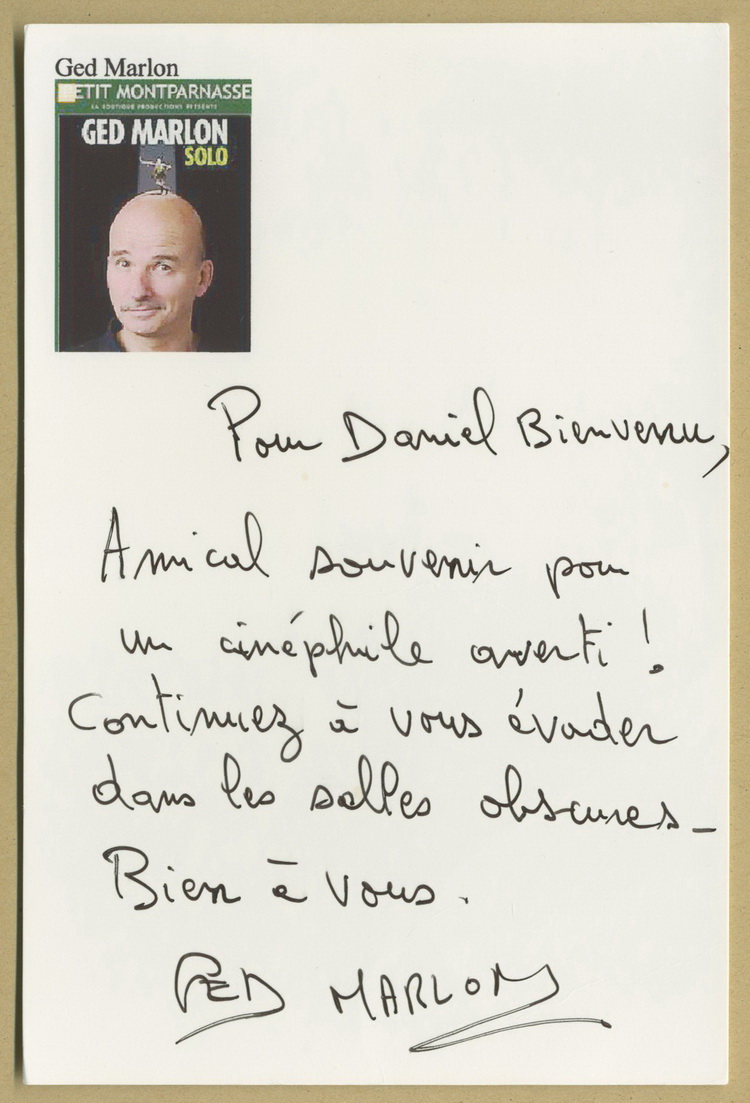 Ged Marlon
PETIT MONTPARNASSE
LA BOUTIQUE PRODUCTIONS PRÉSENTE
GED MARLON
SOLO
Pour Daniel Bienvenu,
Amical souvenir pour
un cinéphile averti !
Continuez à vous évader
dans les salles obscures_
Bien à vous.
GED MARLON